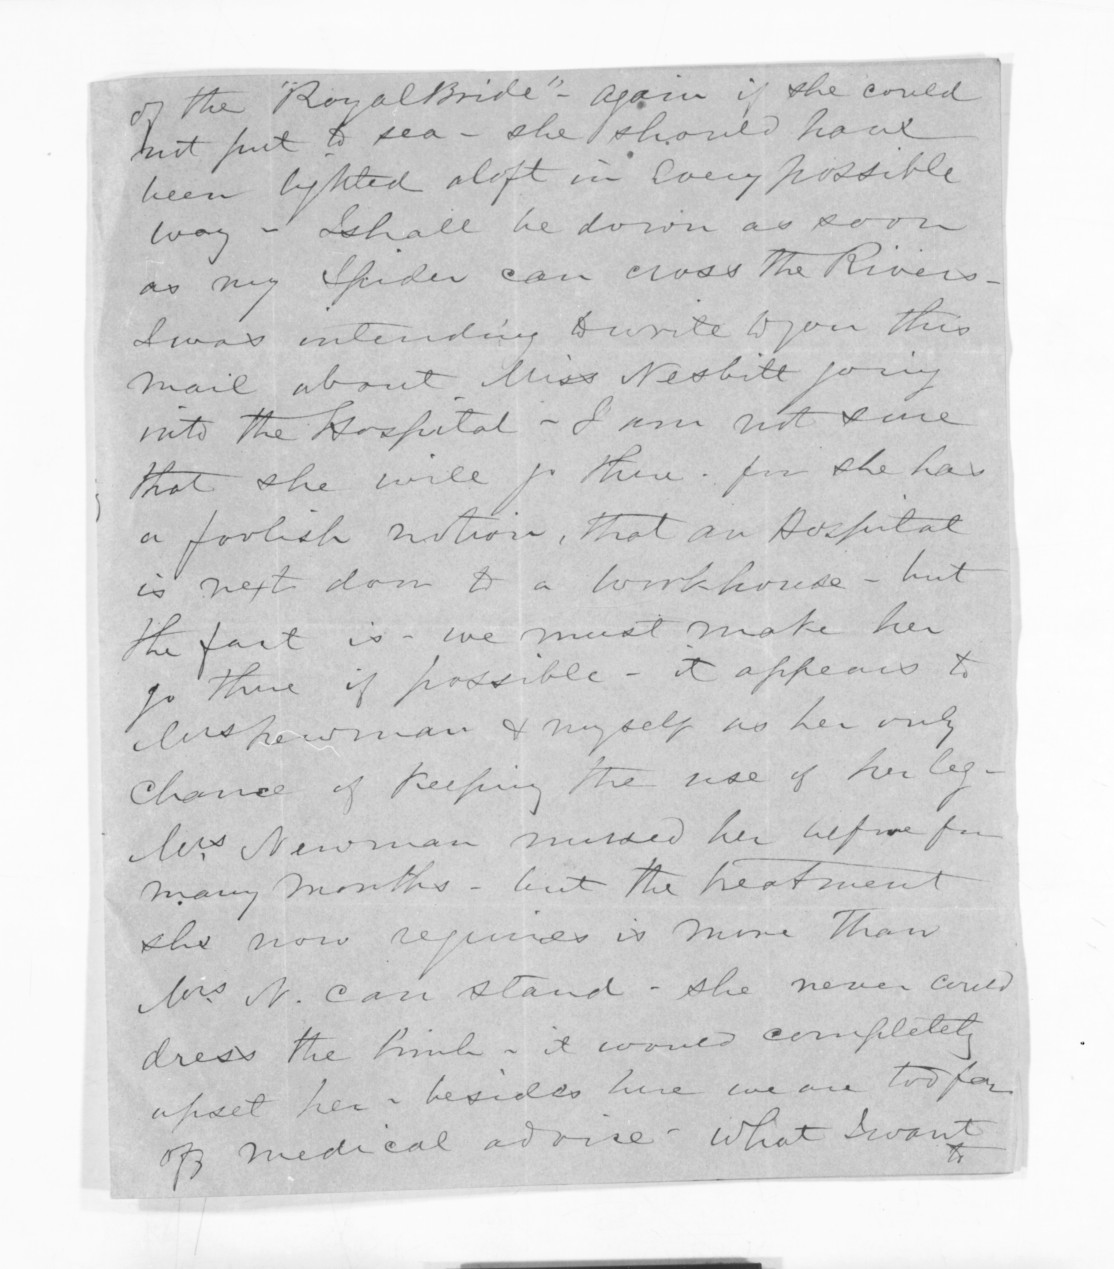 of the "Royal Bride" - again if she could
not put to sea - she should have
been lighted aloft in every possible
way - I shall be down as soon
as my Spider can cross the Rivers -
I was intending to write to you this
mail about Miss Nesbitt going
into the Hospital - I am not sure
that she will go there - for she has
a foolish notion, that an Hospital
is next door to a workhouse - but
the fact is - we must make her
go there if possible - it appears to
Mrs Newman & myself as her only
chance of keeping the use of her leg -
Mrs. Newman nursed her before for
many months - but the treatment
she now requires is more than
Mrs. N. can stand - she never could
dress the limb - it would completely
upset her - besides here we are too far
off medical advise - What I want
to